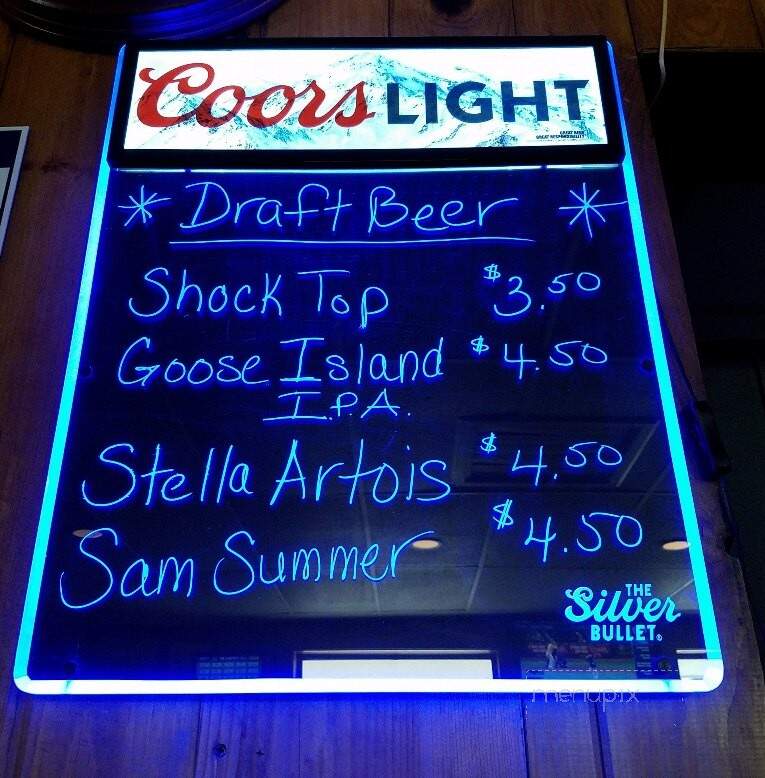 Coors LIGHT
GREAT BEER
GREAT RESPONSIBILITY
* Draft Beer *
Shock Top $3.50
Goose Island $4.50
I.P.A.
Stella Artois $4.50
Sam Summer $4.50
THE
Silver
BULLET®
menupix